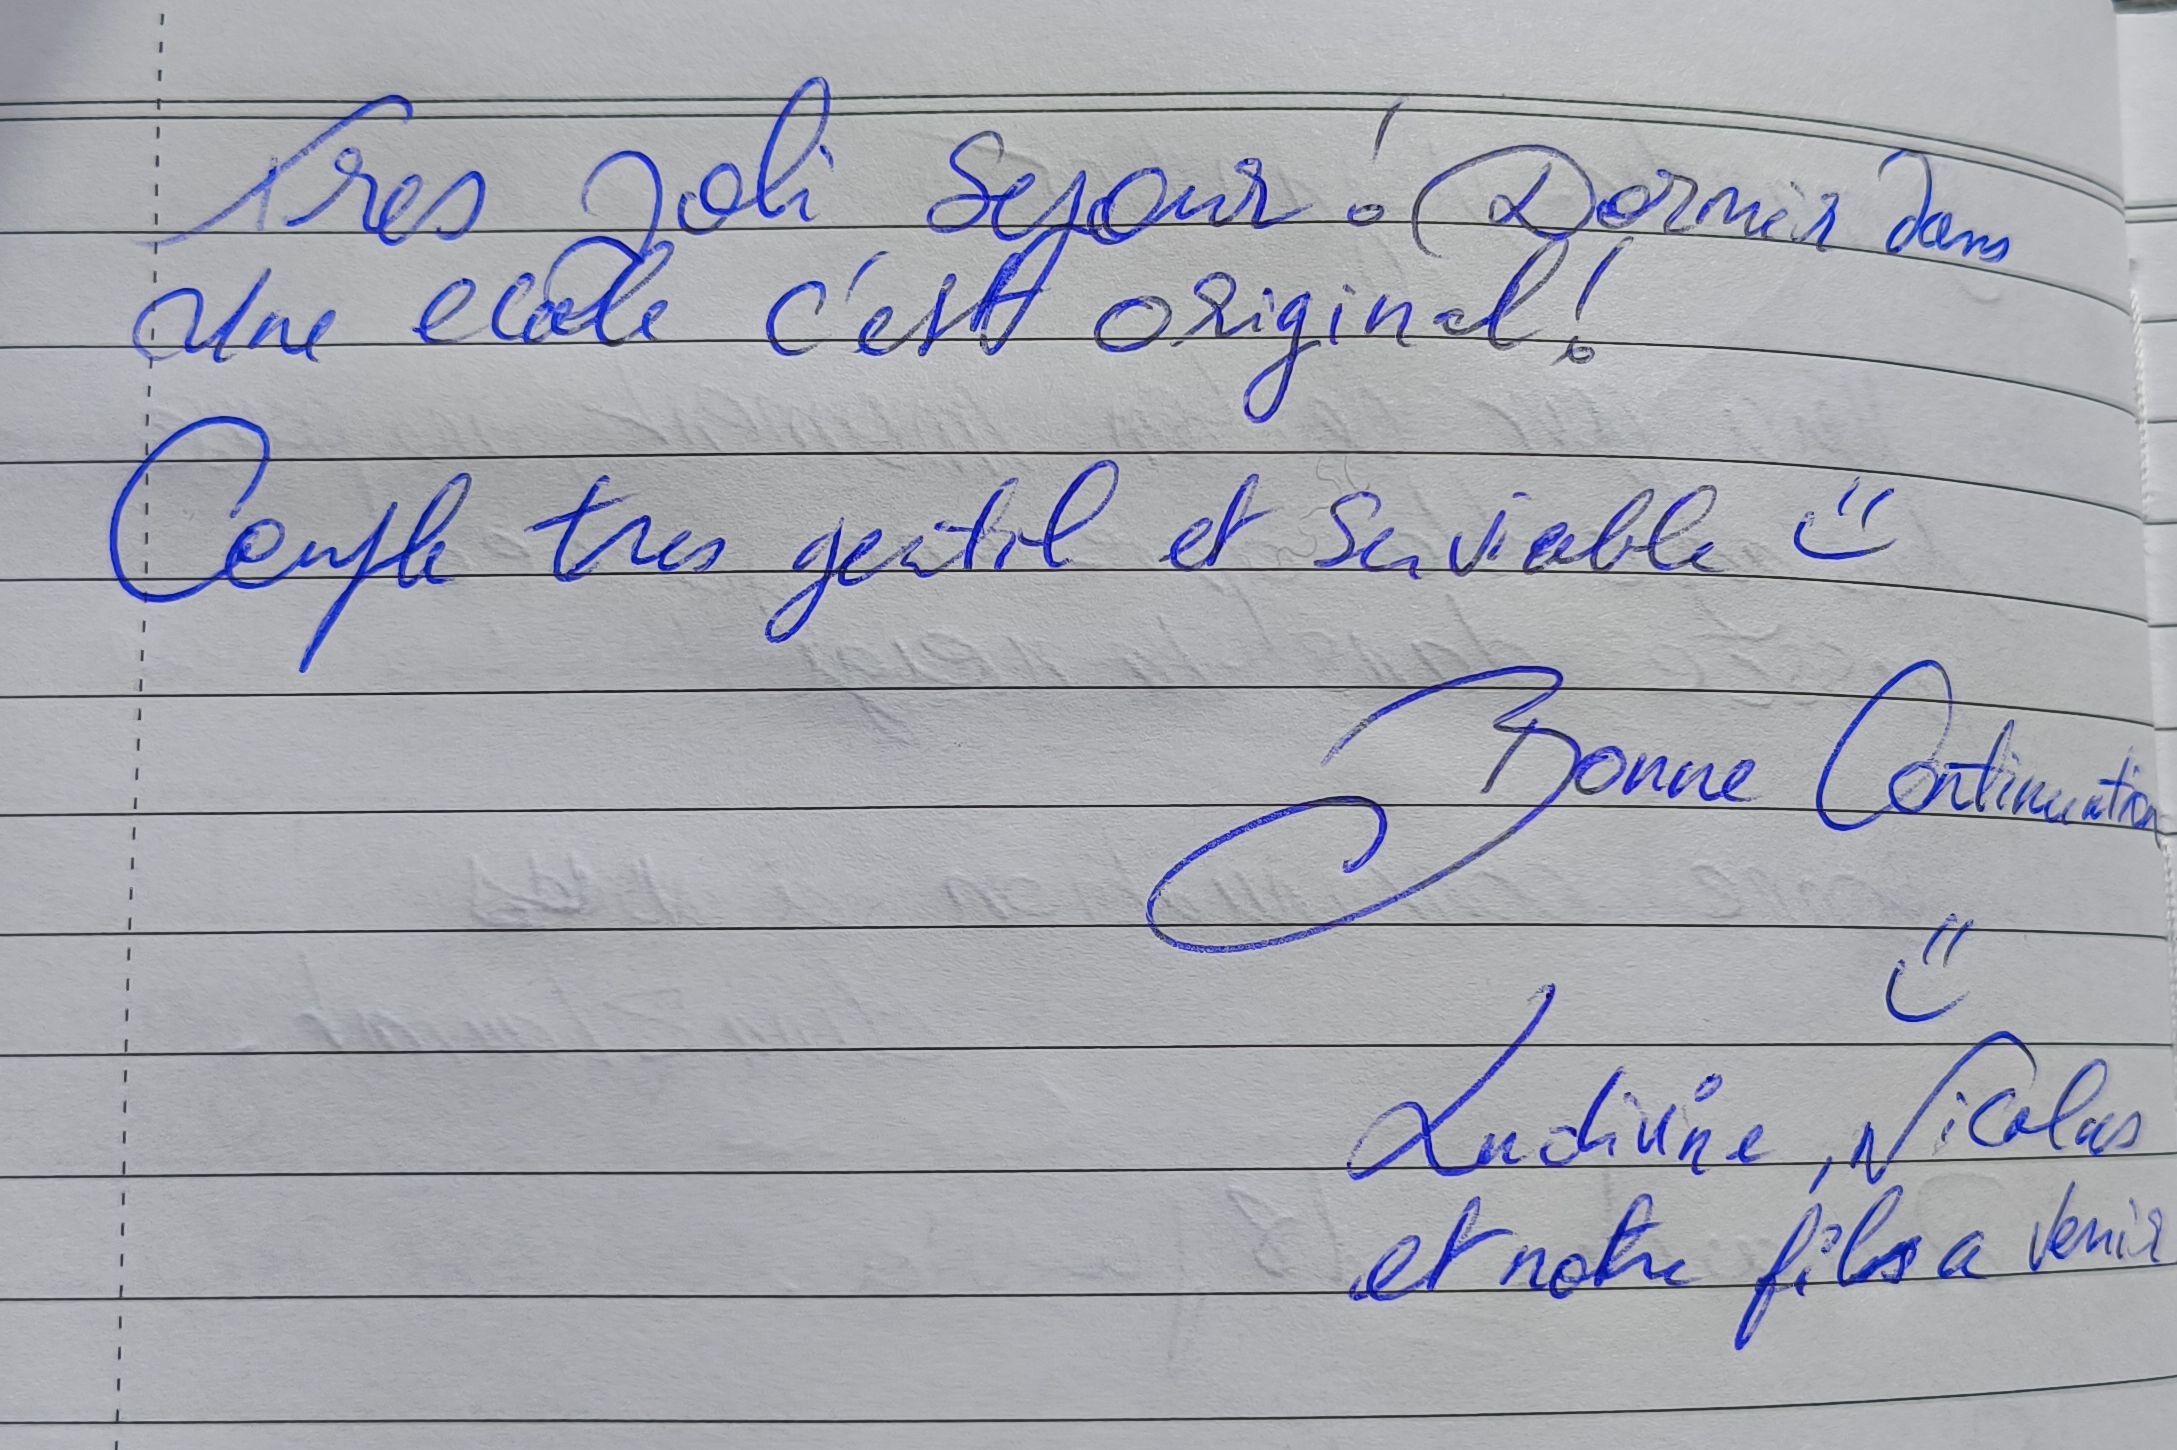 Tres joli sejour ! Dormir dans
une ecole c'est original !
Couple tres gentil et serviable :)
Bonne Continuation
:)
Ludivine, Nicolas
et notre fils a venir